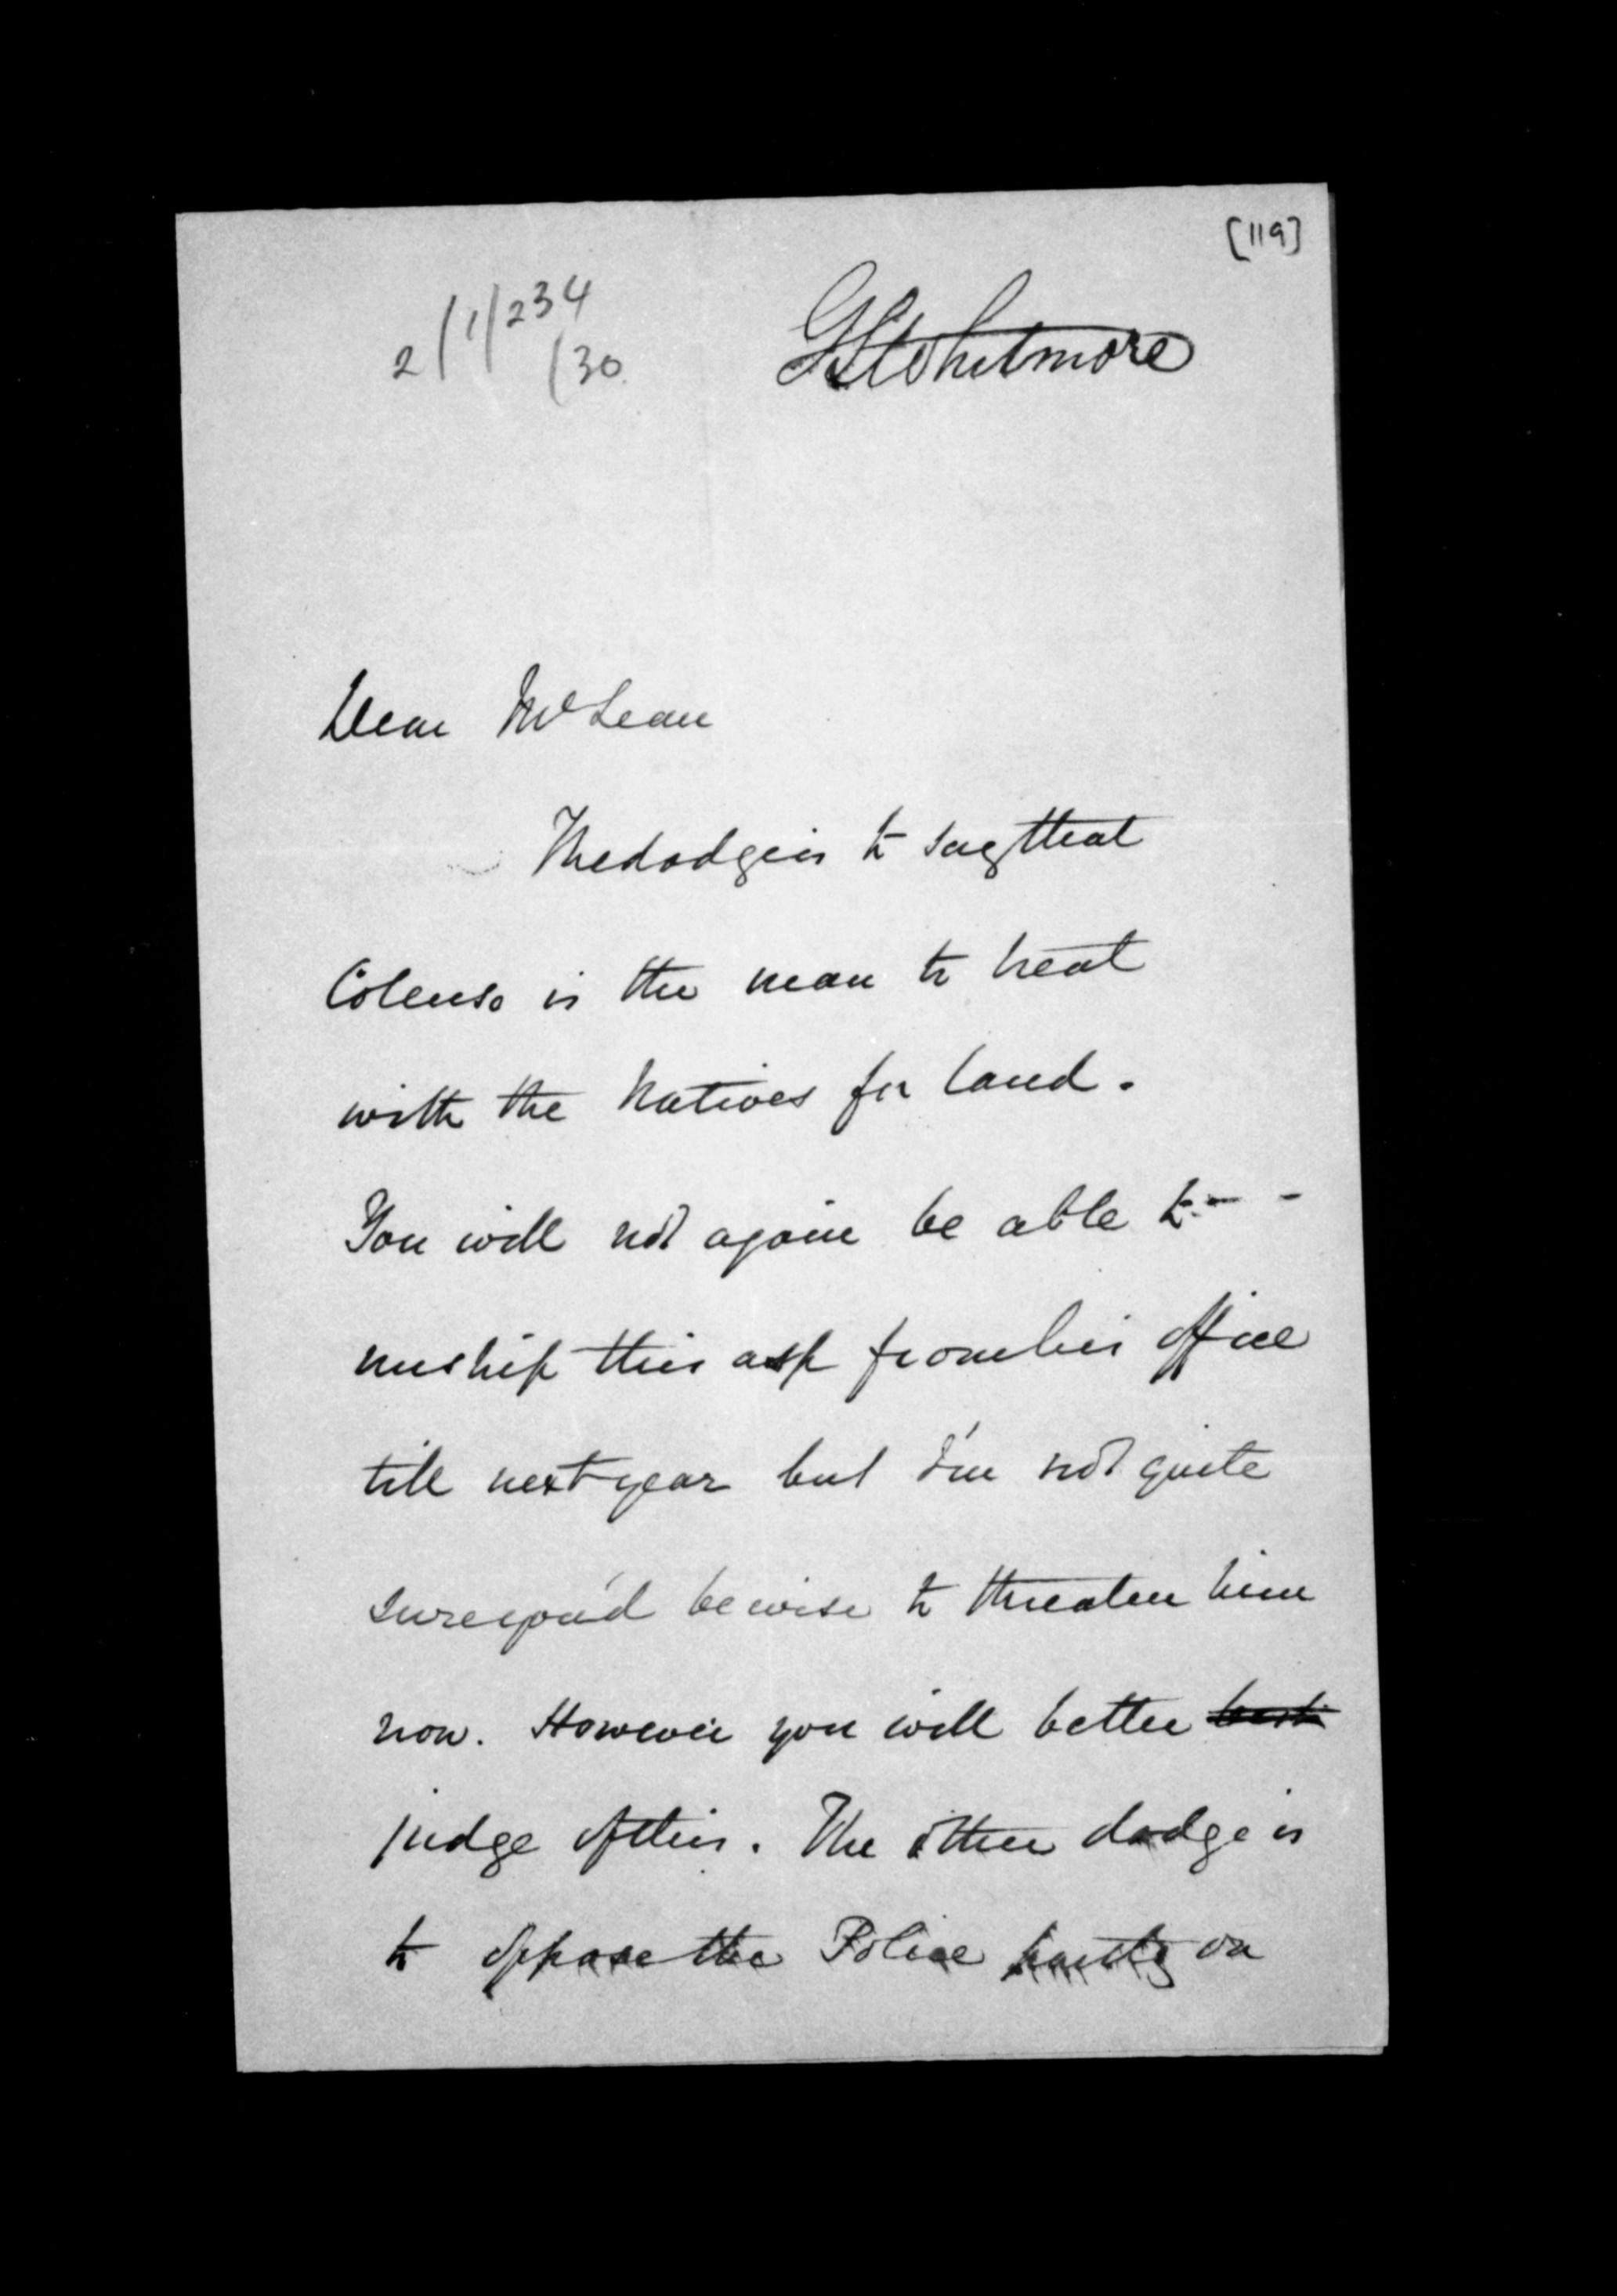 [119]
2/1/234
/30
GSWhitmore
Dear McLean
The dodge is to say that
Colenso is the man to treat
with the Natives for land.
You will not again be able to - -
unship this asp from his office
till next year but I'm not quite
sure you'd be wise to threaten him
now. However you will better
judge of this. The other dodge is
to oppose the Police party on